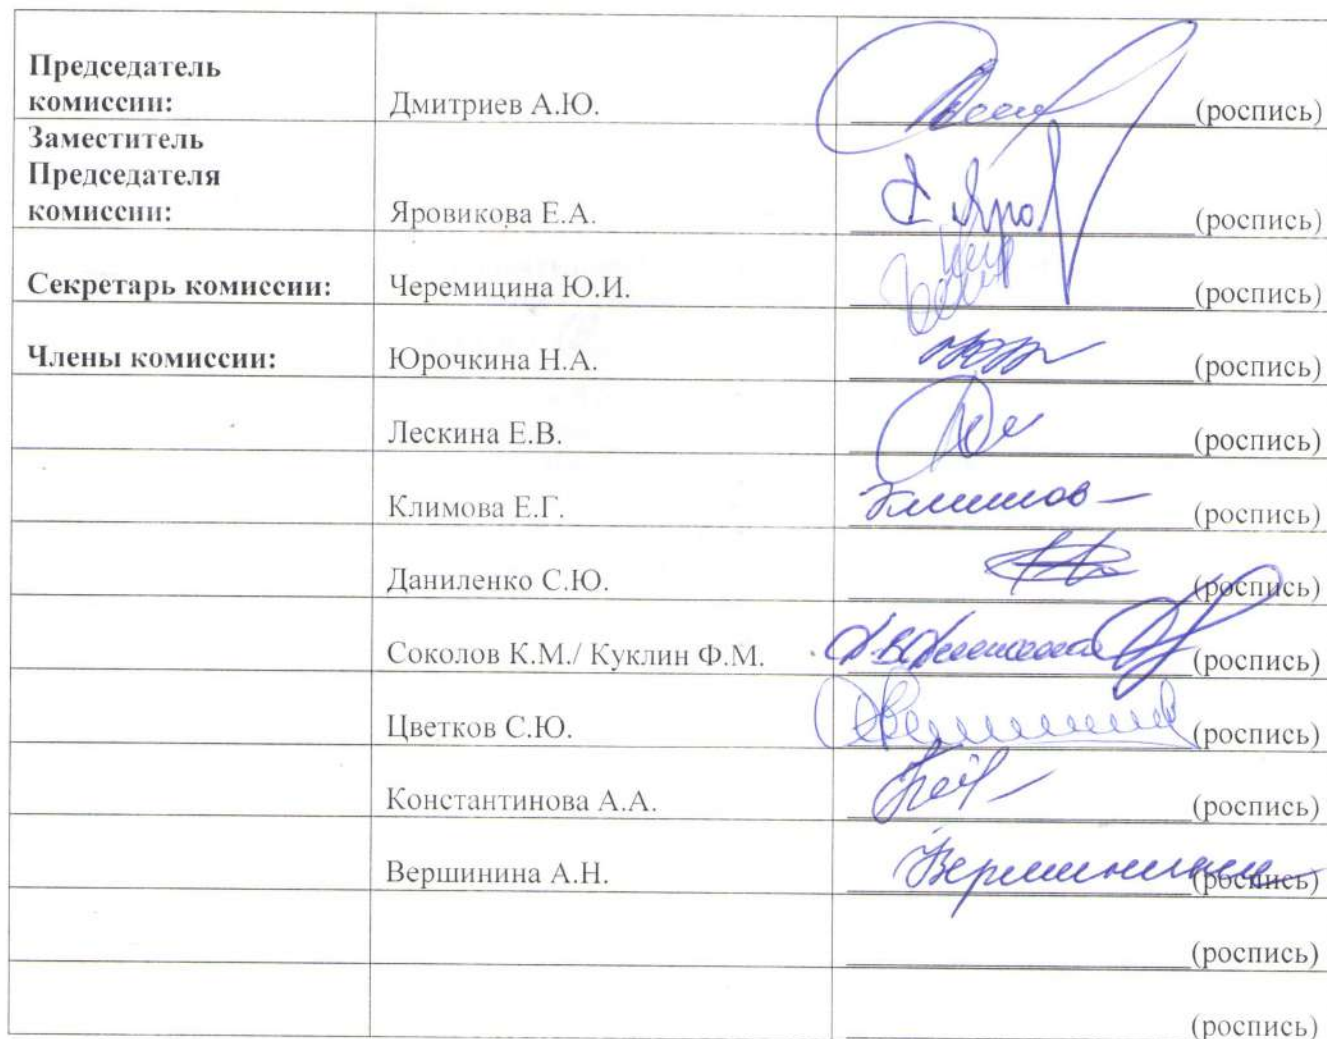 Председатель
комиссии:
Дмитриев А.Ю.
(роспись)
Заместитель
Председателя
комиссии:
Яровикова Е.А.
(роспись)
Секретарь комиссии:
Черемицина Ю.И.
(роспись)
Члены комиссии:
Юрочкина Н.А.
(роспись)
Лескина Е.В.
(роспись)
Климова Е.Г.
(роспись)
Даниленко С.Ю.
(роспись)
Соколов К.М./ Куклин Ф.М.
(роспись)
Цветков С.Ю.
(роспись)
Константинова А.А.
(роспись)
Вершинина А.Н.
(роспись)
(роспись)
(роспись)